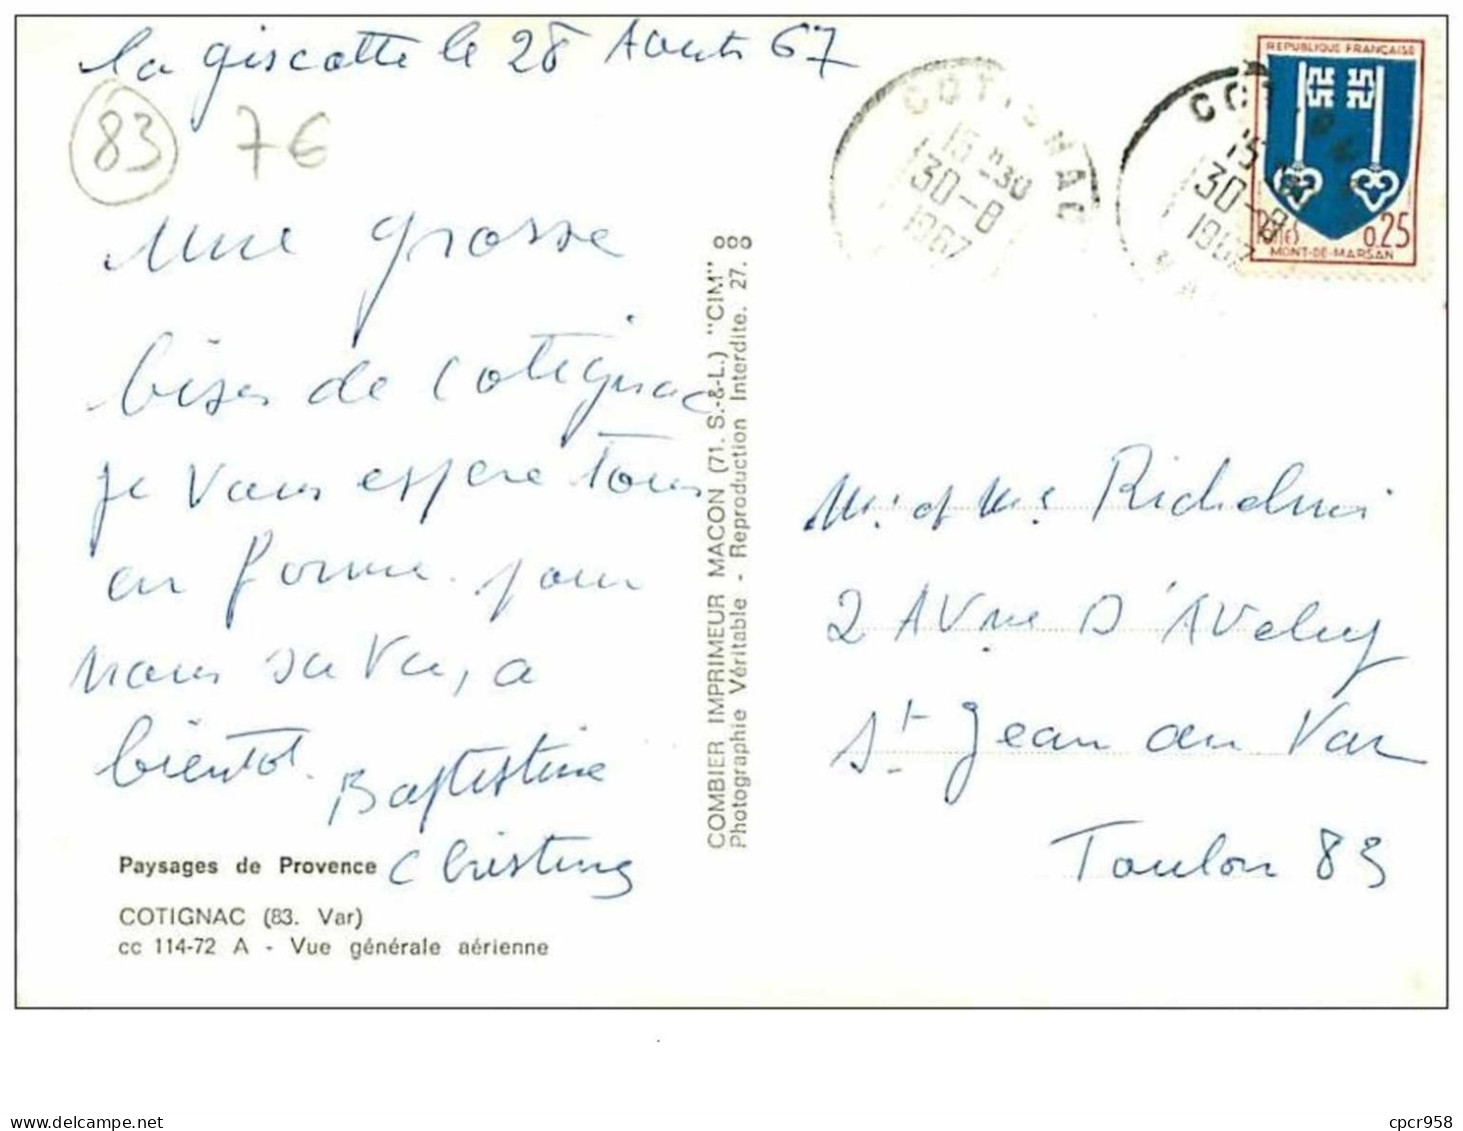 la giscatte le 28 Aout 67
83 7€
Une grosse
bises de Cotignac
je vous espere tous
en forme. pour
nous sa va, a
bientot.
Baptistine
Christine
Paysages de Provence
COTIGNAC (83. Var)
cc 114-72 A - Vue générale aérienne
COMBIER IMPRIMEUR MACON (71. S.-&-L.) "CIM"
Photographie Véritable - Reproduction Interdite. 27.
COTIGNAC
15H30
30-8
1967
REPUBLIQUE FRANÇAISE
POSTES 0,25
MONT-DE-MARSAN
COTIGNAC
15
30-8
1967
Mr et Me Richelmi
2 AVnue D'AVelly
St Jean du Var
Toulon 83
cpcr958